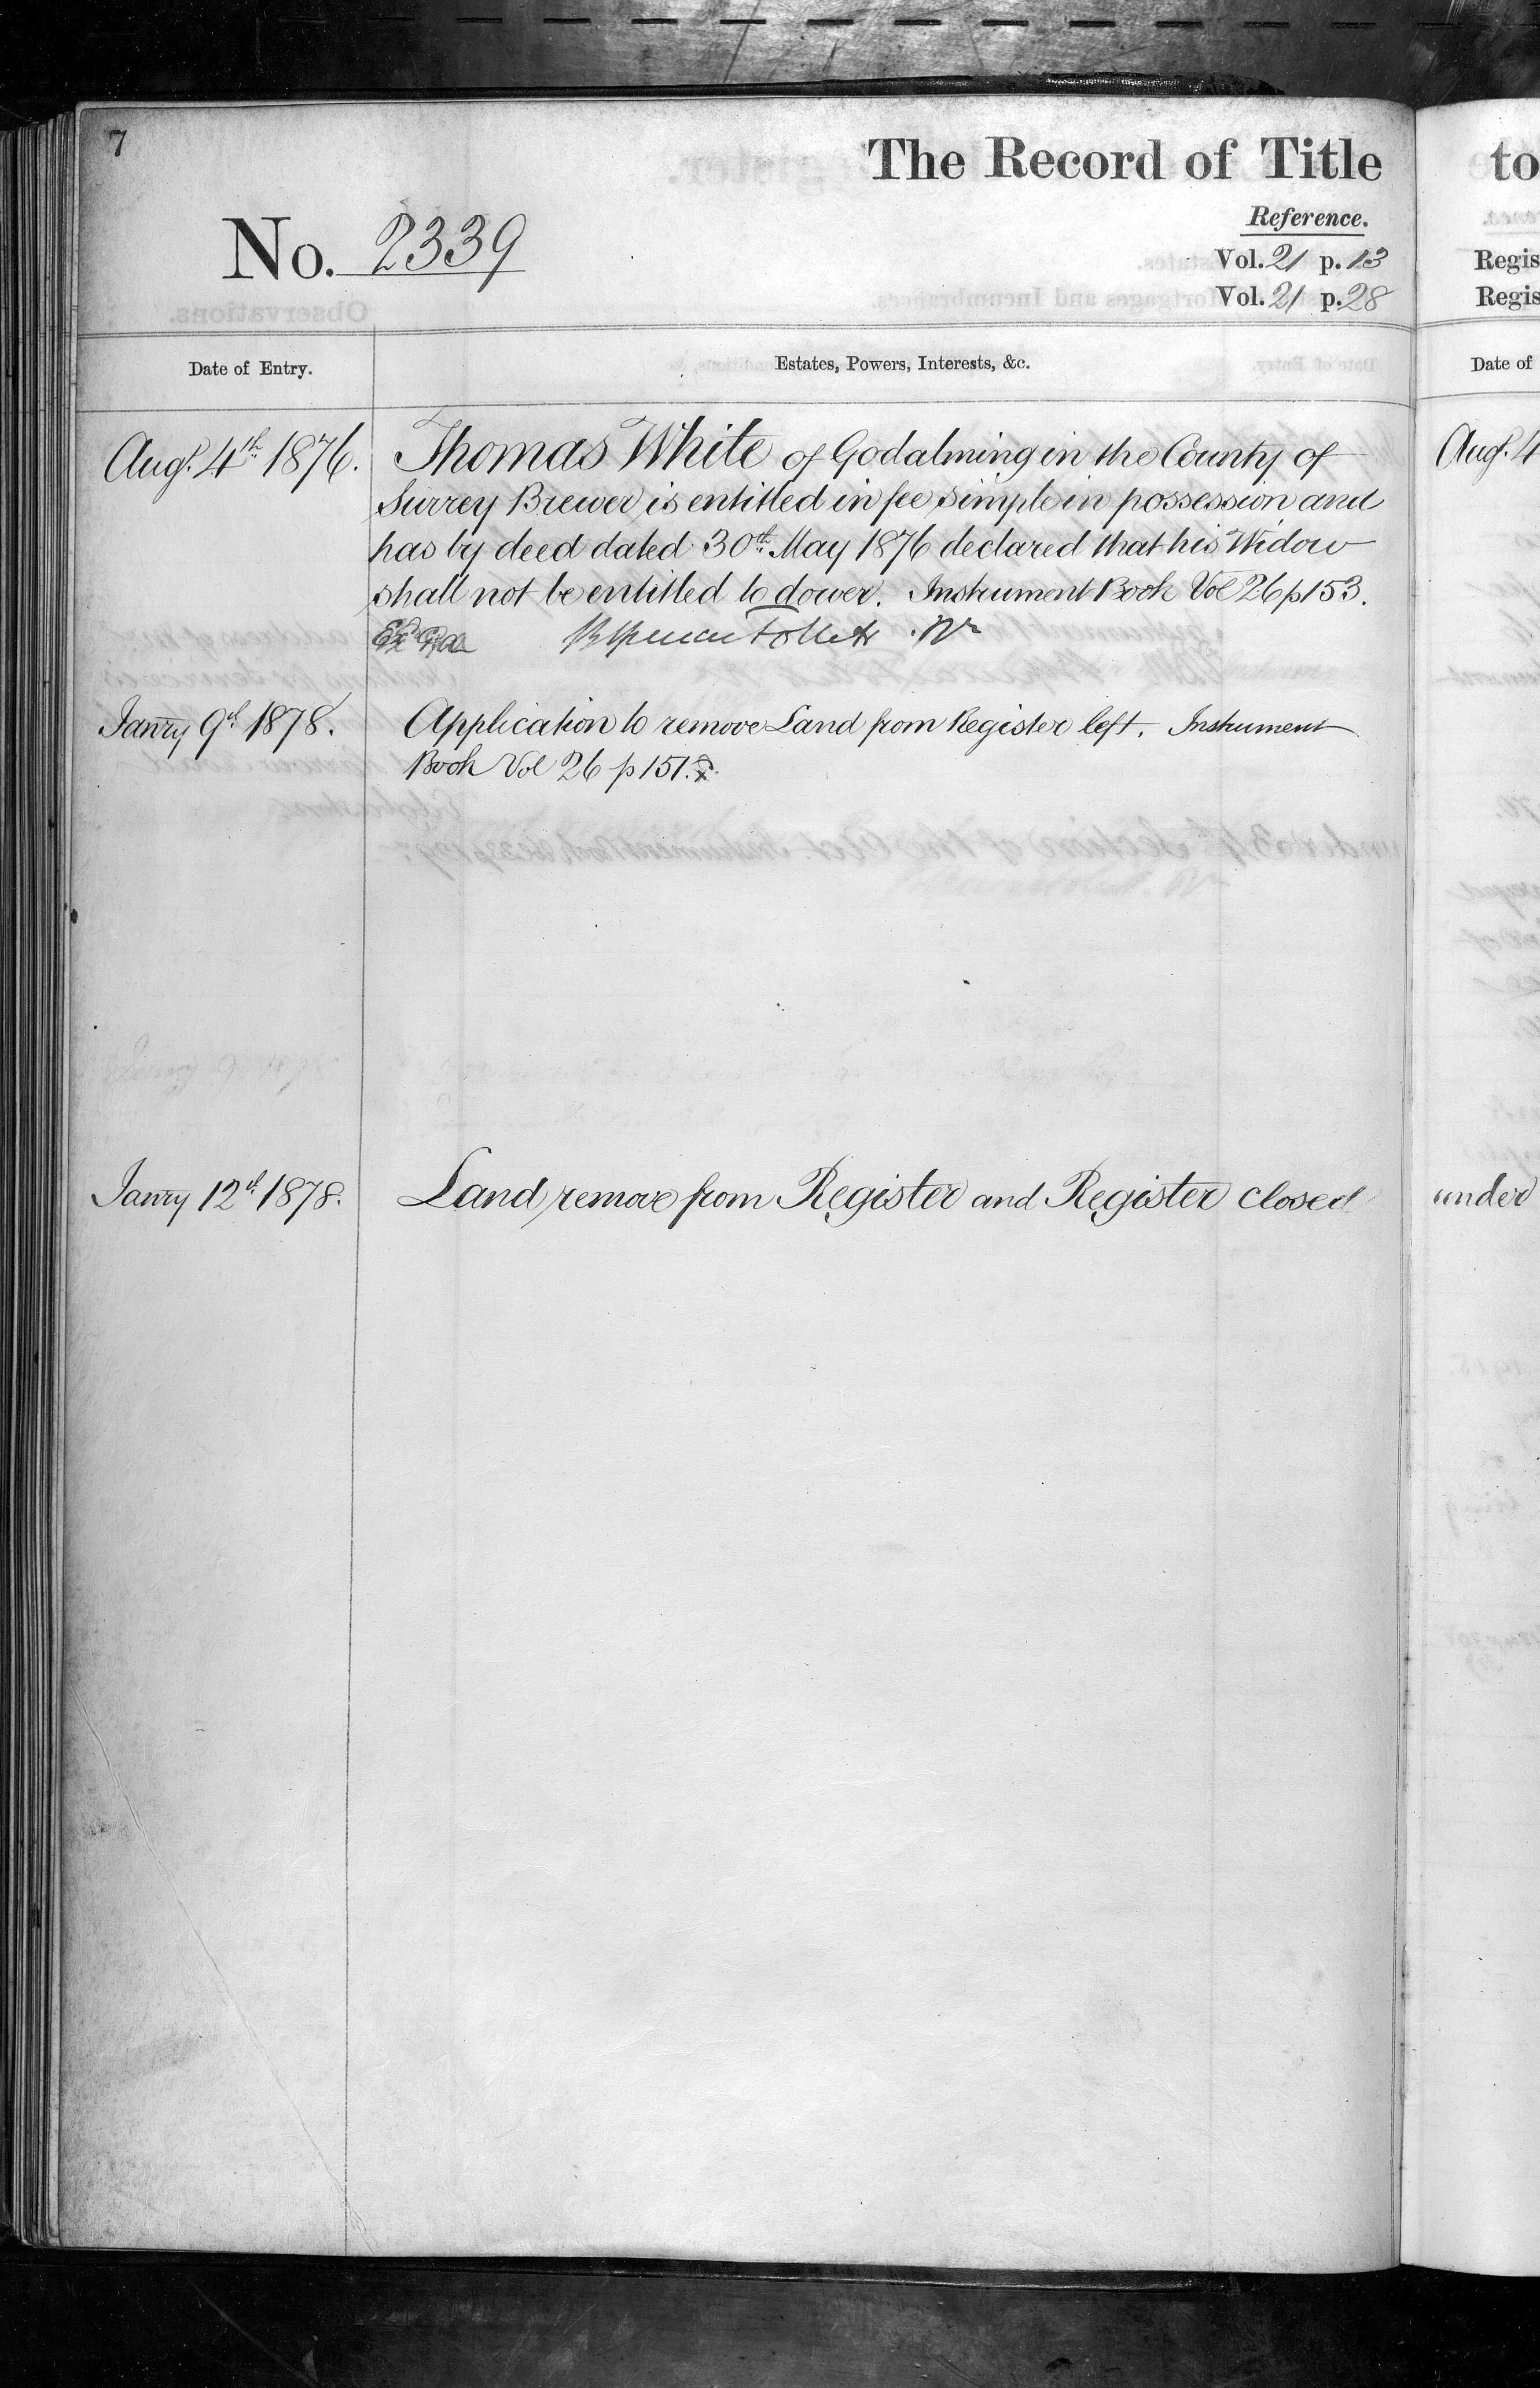 7
The Record of Title
to
Reference.
No. 2339
Vol. 21 p. 13
Regis
Vol. 21 p. 28
Regis
Date of Entry.
Estates, Powers, Interests, &c.
Date of
Augt. 4th 1876.
Thomas White of Godalming in the County of
Augt. 4
Surrey Brewer is entitled in fee simple in possession and
has by deed dated 30th May 1876 declared that his Widow
shall not be entitled to dower. Instrument Book Vol 26 p 153.
Janry 9th 1878.
Application to remove Land from Register left. Instrument
Book Vol 26 p 151.
Janry 12th 1878.
Land remove from Register and Register closed
under